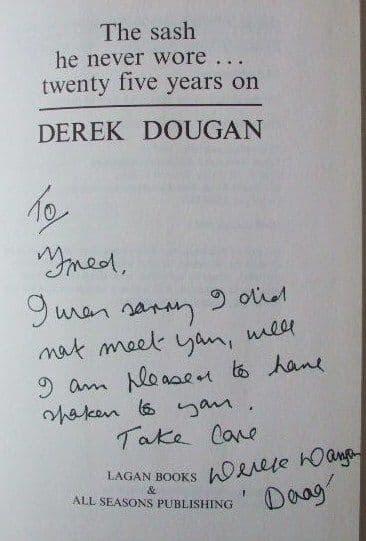 The sash
he never wore ...
twenty five years on
DEREK DOUGAN
To
Fred,
I was sorry I did
not meet you, well
I am pleased to have
spoken to you.
Take Care
Derek Dougan
'Doog'
LAGAN BOOKS
&
ALL SEASONS PUBLISHING